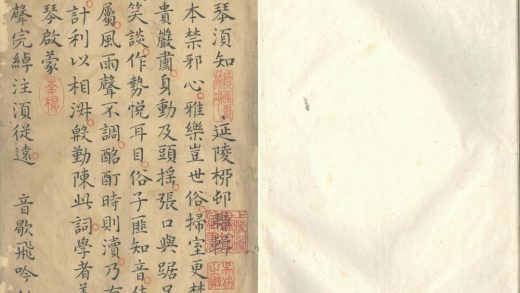 琴須知 延陵栁邨 輯
本禁邪心雅樂豈世俗掃室更焚
貴嚴肅身動及頭搖張口與踞足
笑談作勢悅耳目俗子匪知音
屬風雨聲不調酩酊時則瀆乃有
計利以相淋殷勤陳此詞學者
琴啟蒙
聲完綽注須從遠 音歇飛吟